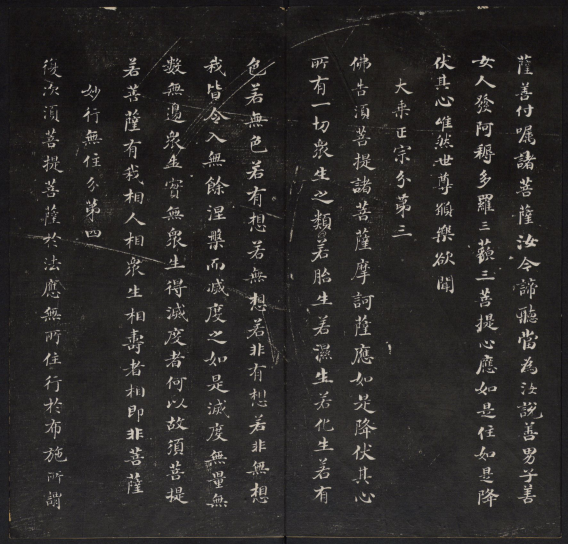 薩善付囑諸菩薩汝今諦聽當為汝說善男子善
女人發阿耨多羅三藐三菩提心應如是住如是降
伏其心唯然世尊願樂欲聞
大乘正宗分第三
佛告須菩提諸菩薩摩訶薩應如是降伏其心
所有一切衆生之類若胎生若濕生若化生若有
色若無色若有想若無想若非有想若非無想
我皆令入無餘涅槃而滅度之如是滅度無量無
數無邊衆生實無衆生得滅度者何以故須菩提
若菩薩有我相人相衆生相壽者相即非菩薩
妙行無住分第四
復次須菩提菩薩於法應無所住行於布施所謂